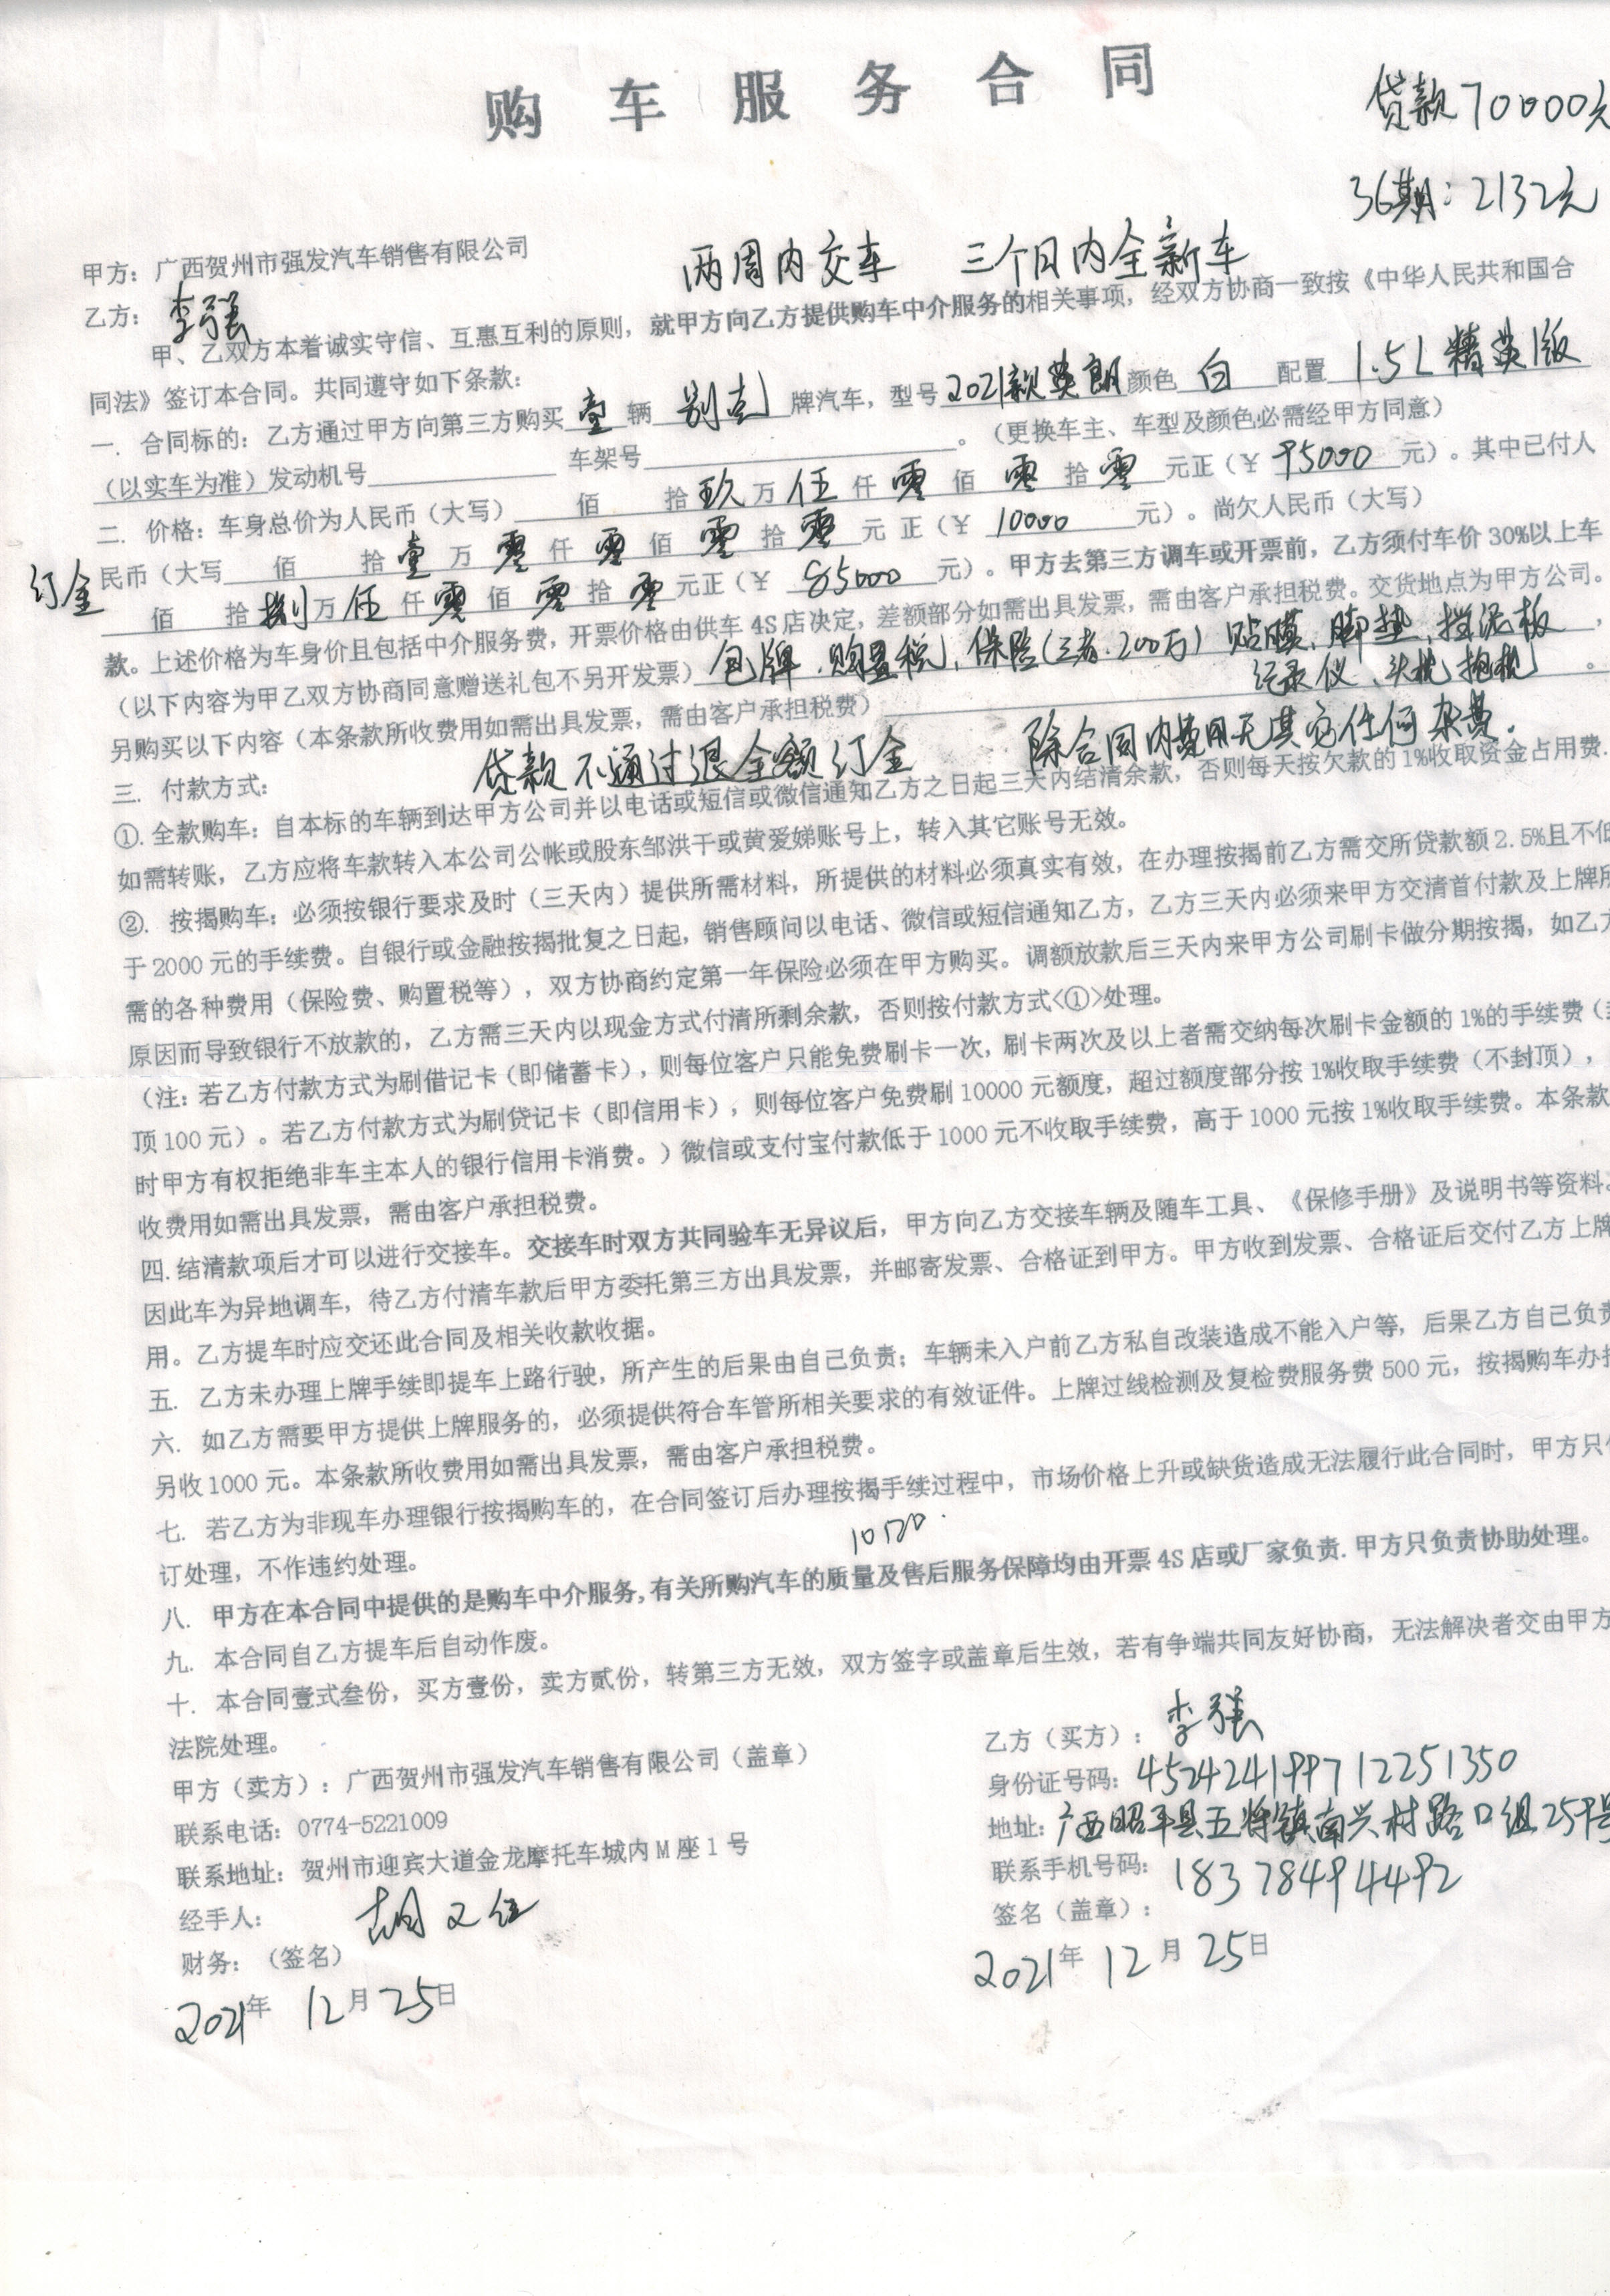 购车服务合同
贷款70000元
36期：2132元
甲方：广西贺州市强发汽车销售有限公司
两周内交车 三个月内全新车
乙方：李强
甲、乙双方本着诚实守信、互惠互利的原则，就甲方向乙方提供购车中介服务的相关事项，经双方协商一致按《中华人民共和国合
同法》签订本合同。共同遵守如下条款：
一. 合同标的：乙方通过甲方向第三方购买 壹 辆 别克 牌汽车，型号 2021款英朗 颜色 白 配置 1.5L精英版
（以实车为准）发动机号 车架号 。（更换车主、车型及颜色必需经甲方同意）
二. 价格：车身总价为人民币（大写） 佰 拾 玖 万 伍 仟 零 佰 零 拾 零 元正（¥ 95000 元）。其中已付人
订金
民币（大写 佰 拾 壹 万 零 仟 零 佰 零 拾 零 元 正（¥ 10000 元）。尚欠人民币（大写）
佰 拾 捌 万 伍 仟 零 佰 零 拾 零 元正（¥ 85000 元）。甲方去第三方调车或开票前，乙方须付车价 30%以上车
款。上述价格为车身价且包括中介服务费，开票价格由供车 4S 店决定，差额部分如需出具发票，需由客户承担税费。交货地点为甲方公司。
（以下内容为甲乙双方协商同意赠送礼包不另开发票） 包牌、购置税、保险（三者.200万）贴膜、脚垫、挡泥板，
记录仪、头枕抱枕。
另购买以下内容（本条款所收费用如需出具发票，需由客户承担税费）
贷款不通过退全额订金 除合同内费用无其它任何杂费.
三. 付款方式：
①. 全款购车：自本标的车辆到达甲方公司并以电话或短信或微信通知乙方之日起三天内结清余款，否则每天按欠款的 1%收取资金占用费.
如需转账，乙方应将车款转入本公司公帐或股东邹洪干或黄爱娣账号上，转入其它账号无效。
②. 按揭购车：必须按银行要求及时（三天内）提供所需材料，所提供的材料必须真实有效，在办理按揭前乙方需交所贷款额 2.5%且不低
于 2000 元的手续费。自银行或金融按揭批复之日起，销售顾问以电话、微信或短信通知乙方，乙方三天内必须来甲方交清首付款及上牌所
需的各种费用（保险费、购置税等），双方协商约定第一年保险必须在甲方购买。调额放款后三天内来甲方公司刷卡做分期按揭，如乙方
原因而导致银行不放款的，乙方需三天内以现金方式付清所剩余款，否则按付款方式<①>处理。
（注：若乙方付款方式为刷借记卡（即储蓄卡），则每位客户只能免费刷卡一次，刷卡两次及以上者需交纳每次刷卡金额的 1%的手续费（封
顶 100 元）。若乙方付款方式为刷贷记卡（即信用卡），则每位客户免费刷 10000 元额度，超过额度部分按 1%收取手续费（不封顶），
时甲方有权拒绝非车主本人的银行信用卡消费。）微信或支付宝付款低于 1000 元不收取手续费，高于 1000 元按 1%收取手续费。本条款
收费用如需出具发票，需由客户承担税费。
四. 结清款项后才可以进行交接车。交接车时双方共同验车无异议后，甲方向乙方交接车辆及随车工具、《保修手册》及说明书等资料。
因此车为异地调车，待乙方付清车款后甲方委托第三方出具发票，并邮寄发票、合格证到甲方。甲方收到发票、合格证后交付乙方上牌
用。乙方提车时应交还此合同及相关收款收据。
五. 乙方未办理上牌手续即提车上路行驶，所产生的后果由自己负责；车辆未入户前乙方私自改装造成不能入户等，后果乙方自己负责
六. 如乙方需要甲方提供上牌服务的，必须提供符合车管所相关要求的有效证件。上牌过线检测及复检费服务费 500 元，按揭购车办抵
另收 1000 元。本条款所收费用如需出具发票，需由客户承担税费。
七. 若乙方为非现车办理银行按揭购车的，在合同签订后办理按揭手续过程中，市场价格上升或缺货造成无法履行此合同时，甲方只作
订处理，不作违约处理。
八. 甲方在本合同中提供的是购车中介服务，有关所购汽车的质量及售后服务保障均由开票 4S 店或厂家负责. 甲方只负责协助处理。
九. 本合同自乙方提车后自动作废。
十. 本合同壹式叁份，买方壹份，卖方贰份，转第三方无效，双方签字或盖章后生效，若有争端共同友好协商，无法解决者交由甲方
法院处理。
甲方（卖方）：广西贺州市强发汽车销售有限公司（盖章）
联系电话：0774-5221009
联系地址：贺州市迎宾大道金龙摩托车城内 M 座 1 号
经手人：
财务：（签名）
2021年 12月 25日
乙方（买方）：李强
身份证号码：452424199712251350
地址：广西昭平县五将镇南兴村路口组259号
联系手机号码：18378494492
签名（盖章）：
2021年 12月 25日